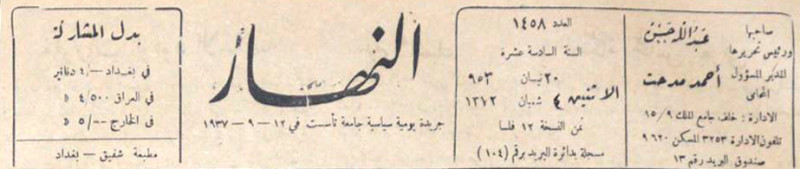 صاحبها
ورئيس تحريرها
المدير المسؤول
أحمد مدحت
المحامي
الادارة : خلف جامع الملك ١٥/٩
تلفون الادارة ٣٢٥٣ المسكن ٩٦٢٠
صندوق البريد رقم ١٣
العدد ١٤٥٨
السنة السادسة عشرة
الاثنين
٢٠ نيسان ٩٥٣
٤ شعبان ١٣٧٢
ثمن النسخة ١٢ فلسا
مسجلة بدائرة البريد برقم (١٠٤)
النهار
جريدة يومية سياسية جامعة تأسست في ١٢ – ٩ – ١٩٣٧
بدل المشاركة
في بغداد —/٤ دنانير
في العراق ٤/٥٠٠ »
في الخارج —/٥ »
مطبعة شفيق – بغداد